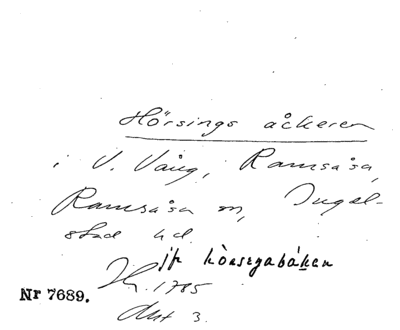 Hörsings åckeren
i V. Vång, Ramsåsa,
Ramsåsa sn, Ingel-
stad hd.
jfr körsegabáken
1785
Nr 7689.
Akt 3.